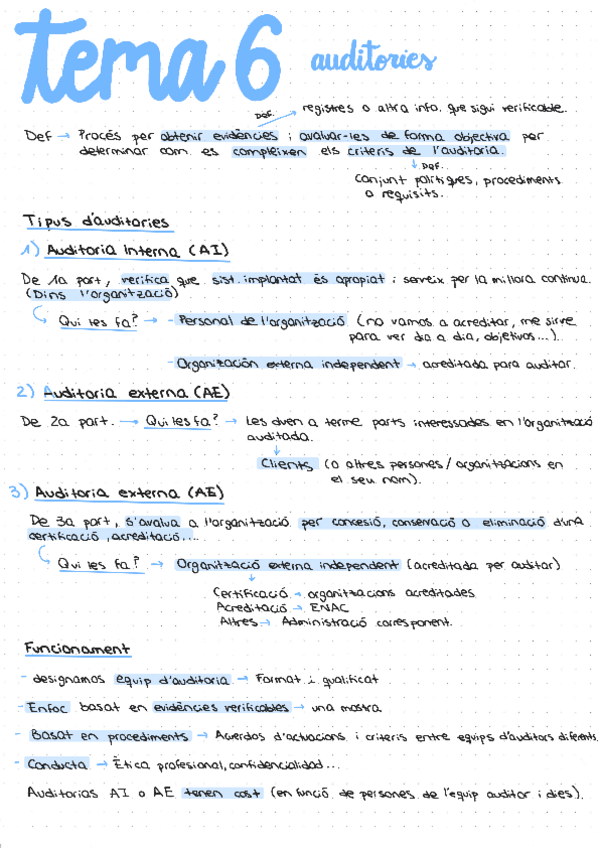 tema 6 auditories
Def. → registres o altra info. que sigui verificable.
Def → Procés per obtenir evidències i avaluar-les de forma objectiva per
determinar com es compleixen els criteris de l'auditoria.
↓ Def.
conjunt polítiques, procediments
o requisits.
Tipus d'auditories
1) Auditoria Interna (AI)
De 1a part, verifica que sist. implantat és apropiat i serveix per la millora continua.
(Dins l'organització)
Qui les fa? → - Personal de l'organització (no vamos a acreditar, me sirve
para ver dia a dia, objetivos...).
- Organización externa independent → acreditada para auditar.
2) Auditoria externa (AE)
De 2a part. → Qui les fa? → Les duen a terme parts interessades en l'organització
auditada.
↓
Clients (o altres persones/organitzacions en
el seu nom).
3) Auditoria externa (AE)
De 3a part, s'avalua a l'organització per concesió, conservació o eliminació d'una
certificació, acreditació....
Qui les fa? → Organització externa independent (acreditada per auditar)
↓
Certificació → organitzacions acreditades
Acreditació → ENAC
Altres → Administració corresponent.
Funcionament
- designamos equip d'auditoria → Format i qualificat
- Enfoc basat en evidències verificables → una mostra
- Basat en procediments → Acuerdos d'actuacions i criteris entre equips d'auditors diferents.
- Conducta → Ètica profesional, confidencialidad...
Auditorias AI o AE tenen cost (en funció de persones de l'equip auditor i dies).